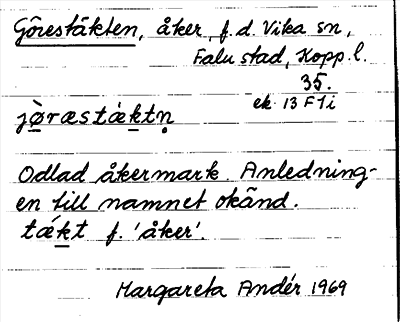 Görestäkten, åker, f.d. Vika sn,
Falu stad, Kopp. l.
35.
ek. 13 F 1 i
jò̤ræstæ̀k̠tn̥
Odlad åkermark. Anledning-
en till namnet okänd.
tǽk̠t f. 'åker'.
Margareta Andér 1969